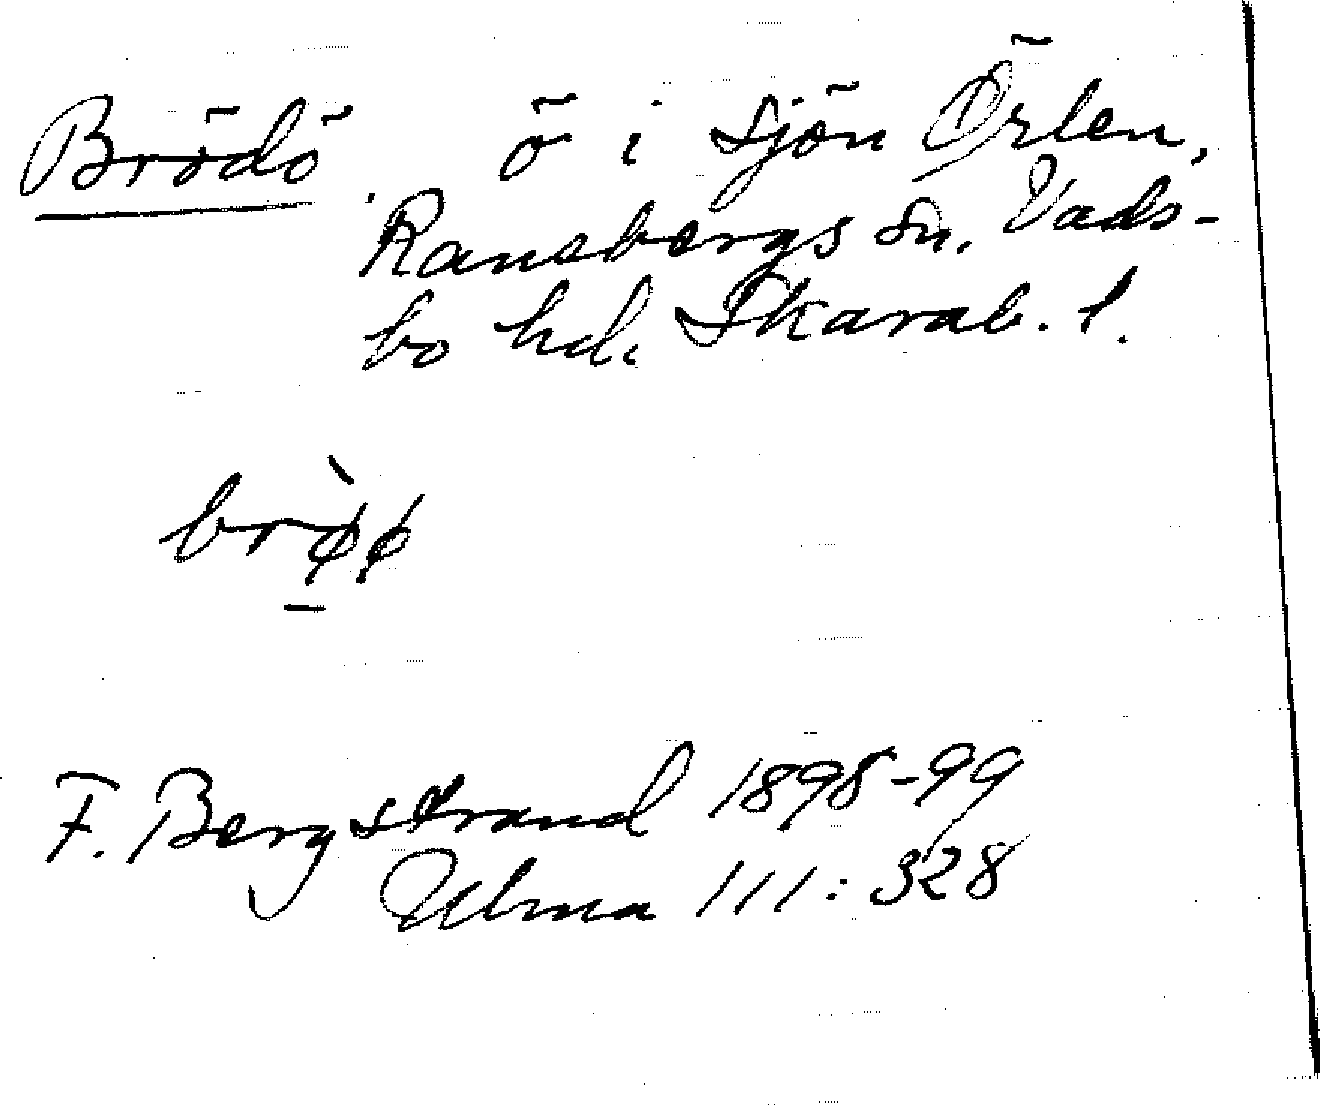 Brödö ö i sjön Örlen,
Ransbergs sn. Vads-
bo hd. Skarab. l.
brø̀ø
F. Bergstrand 1898-99
Ulma 111:328